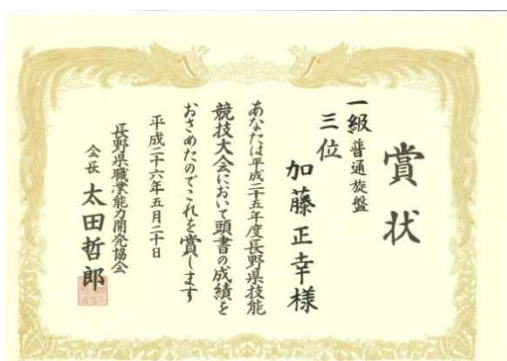 賞状
一級 普通旋盤
三位
加藤正幸様
あなたは平成二十五年度長野県技能
競技大会において頭書の成績を
おさめたのでこれを賞します
平成二十六年五月二十日
長野県職業能力開発協会
会長 太田哲郎